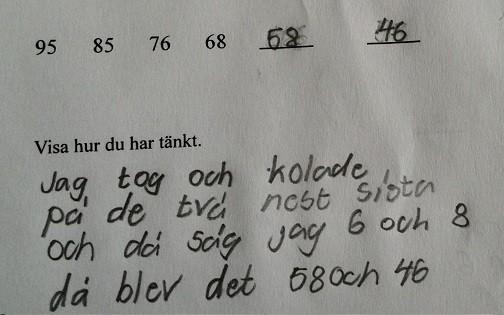 95 85 76 68 58 46
Visa hur du har tänkt.
Jag tog och kolade
på de två nest sista
och då såg jag 6 och 8
då blev det 58 och 46